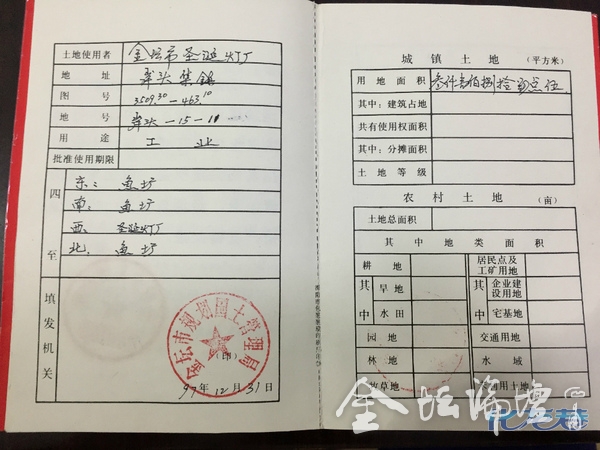 土地使用者 金坛市圣诞灯厂
地址 莘头集镇
图号 3509.30—463.10
地号 莘头—15—11
用途 工业
批准使用期限
四至
东: 鱼坊
南: 鱼坊
西: 圣诞灯厂
北: 鱼坊
填发机关
金坛市规划国土管理局
(印)
97年12月31日
城镇土地 (平方米)
用地面积
其中:建筑占地
共有使用权面积
其中:分摊面积
土地等级
农村土地 (亩)
土地总面积
其中地类面积
耕地 居民点及工矿用地
其中 旱地 其中 企业建设用地
水田 宅基地
园地 交通用地
林地 水域
牧草地 未利用土地
金坛论坛
化龙巷